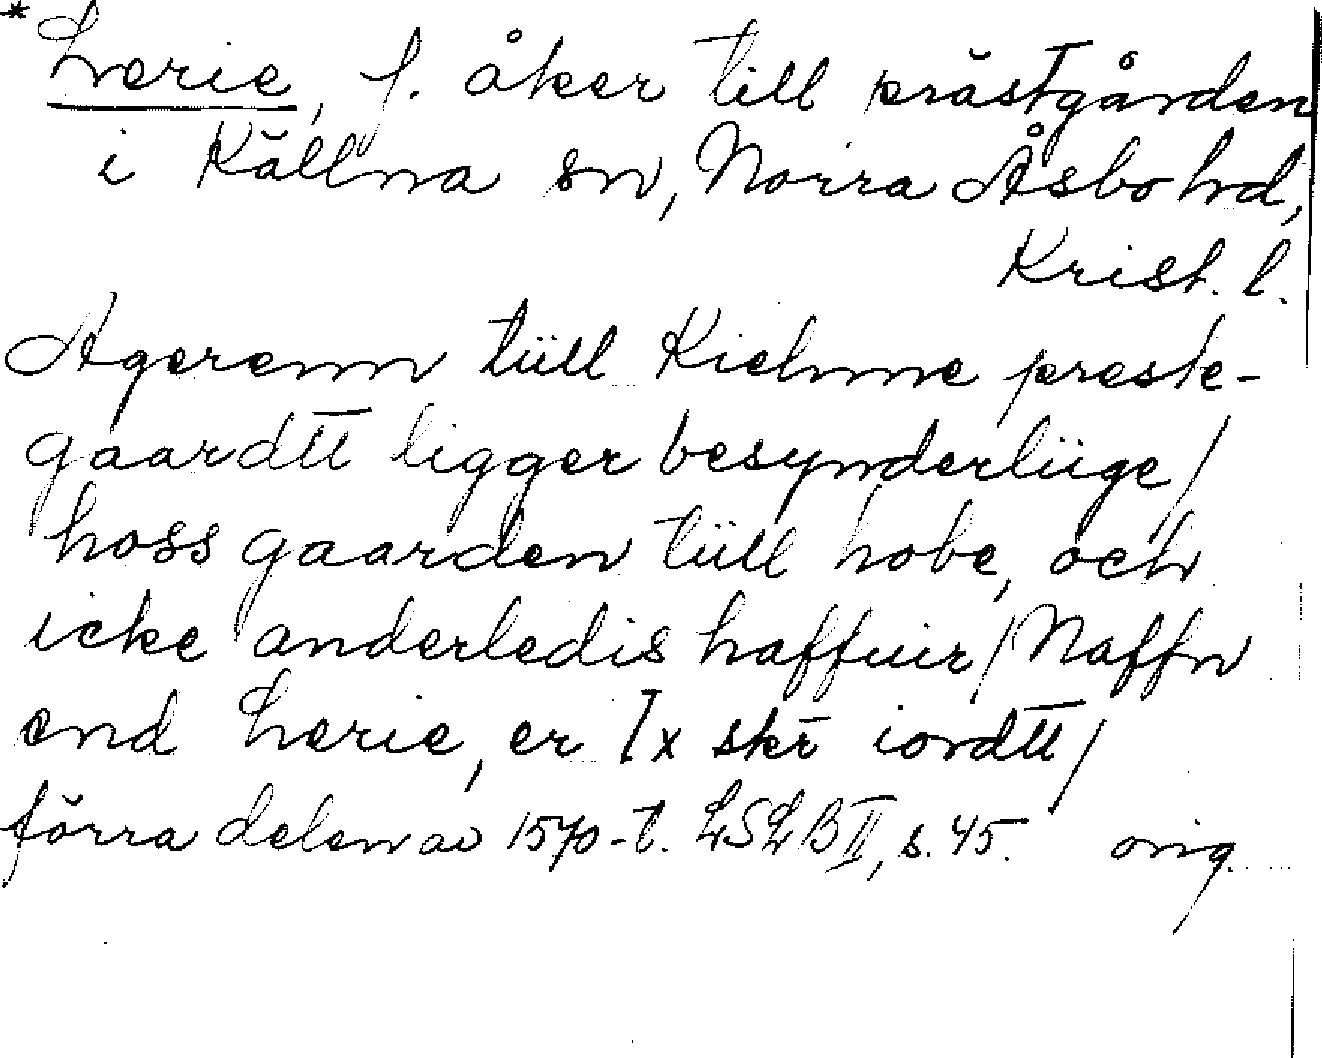 *Lerie, f. åker till prästgården
i Källna sn, Norra Åsbo hd,
Krist. l.
Agerenn tüll Kielnne preste-
gaardtt ligger besynderliige/
hoss gaarden tüll hobe, och
icke anderledis haffuir/Naffn
end Lerie, er Ix skr iordtt/
förra delen av 1570-t. LSLB II, s. 45. orig.